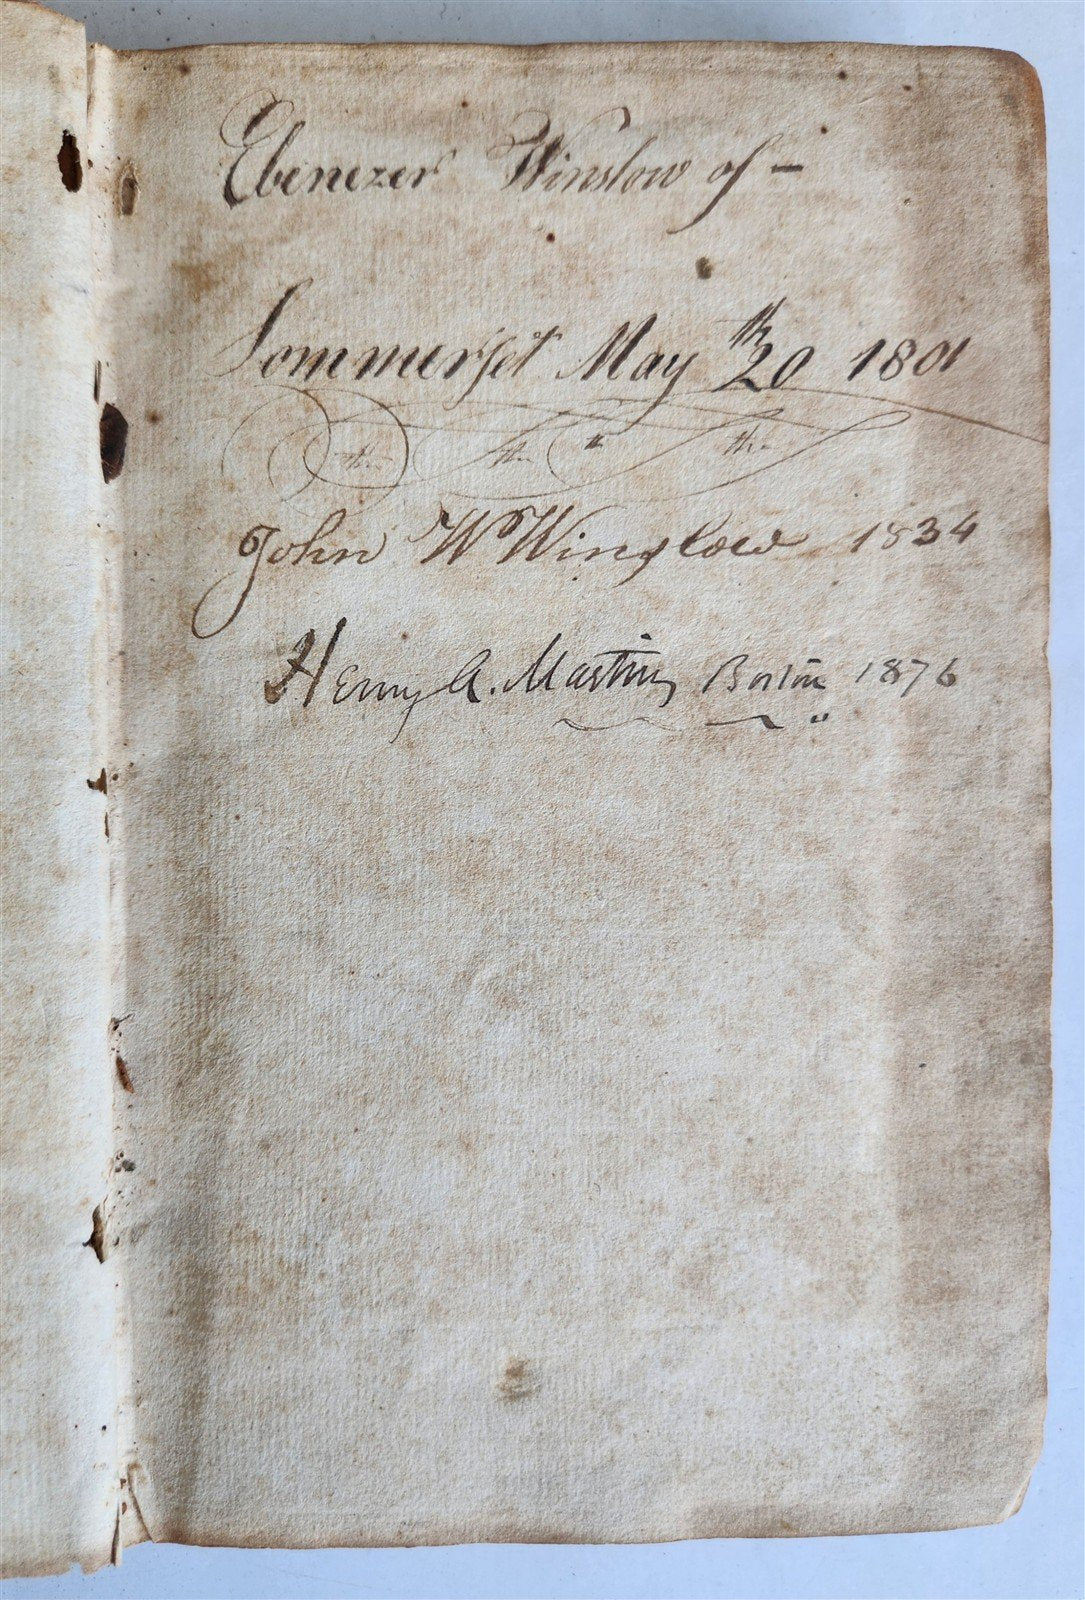 Ebenezer Winslow of –
Sommerſet May 20th 1801
th th th th
John W Winslow 1834
Henry A. Martin, Boston 1876